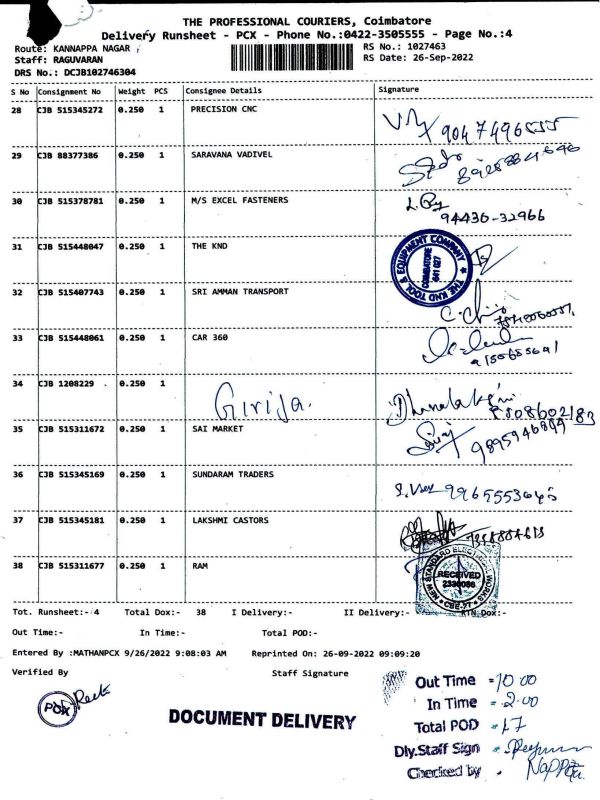 THE PROFESSIONAL COURIERS, Coimbatore
Delivery Runsheet - PCX - Phone No.:0422-3505555 - Page No.:4
Route: KANNAPPA NAGAR
RS No.: 1027463
Staff: RAGUVARAN
RS Date: 26-Sep-2022
DRS No.: DCJB102746304
S No Consignment No Weight PCS Consignee Details Signature
28 CJB 515345272 0.250 1 PRECISION CNC
29 CJB 88377386 0.250 1 SARAVANA VADIVEL
30 CJB 515378781 0.250 1 M/S EXCEL FASTENERS
94430-32966
31 CJB 515448047 0.250 1 THE KND
THE KND TOOL & EQUIPMENT COMPANY
COIMBATORE
641 027
32 CJB 515407743 0.250 1 SRI AMMAN TRANSPORT
33 CJB 515448061 0.250 1 CAR 360
34 CJB 1208229 0.250 1
Girija.
35 CJB 515311672 0.250 1 SAI MARKET
36 CJB 515345169 0.250 1 SUNDARAM TRADERS
37 CJB 515345181 0.250 1 LAKSHMI CASTORS
38 CJB 515311677 0.250 1 RAM
NEW STANDARD ELECTRICAL WORKS
RECEIVED
CBE-27
Tot. Runsheet:- 4 Total Dox:- 38 I Delivery:- II Delivery:- RTN Dox:-
Out Time:- In Time:- Total POD:-
Entered By :MATHANPCX 9/26/2022 9:08:03 AM Reprinted On: 26-09-2022 09:09:20
Verified By Staff Signature
PCX
DOCUMENT DELIVERY
Out Time = 10 00
In Time = 2.00
Total POD = 17
Dly.Staff Sign
Checked by